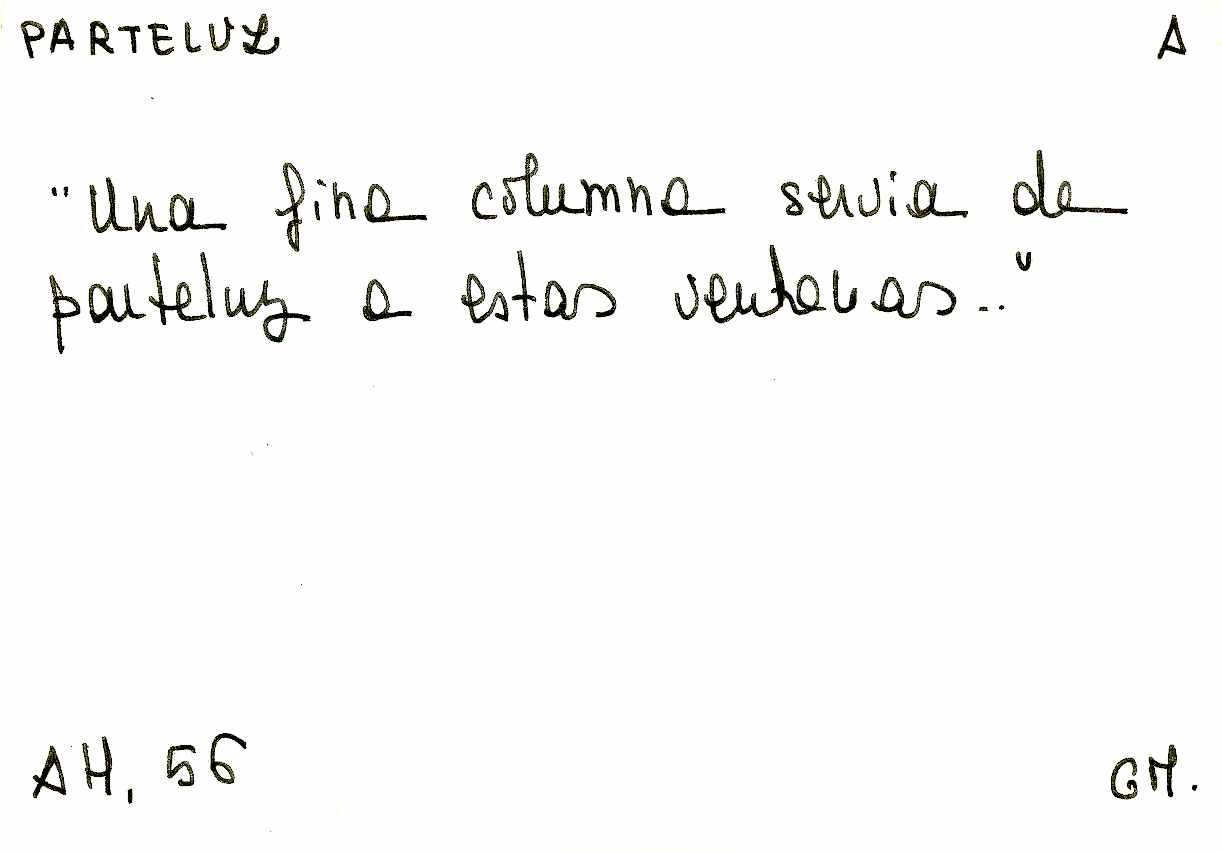 PARTELUZ A
"Una fina columna servia de
parteluz a estas ventanas..."
AH, 56 GM.